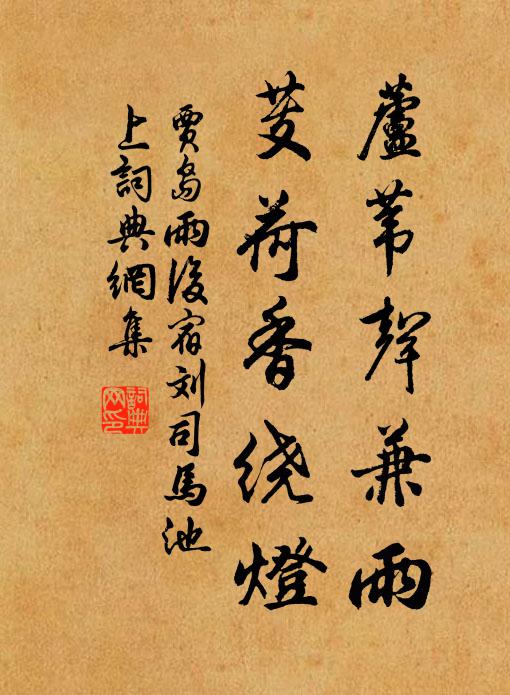 蘆葦聲兼雨
芰荷香绕燈
賈島雨後宿刘司馬池
上詞典網集
詞典
网印